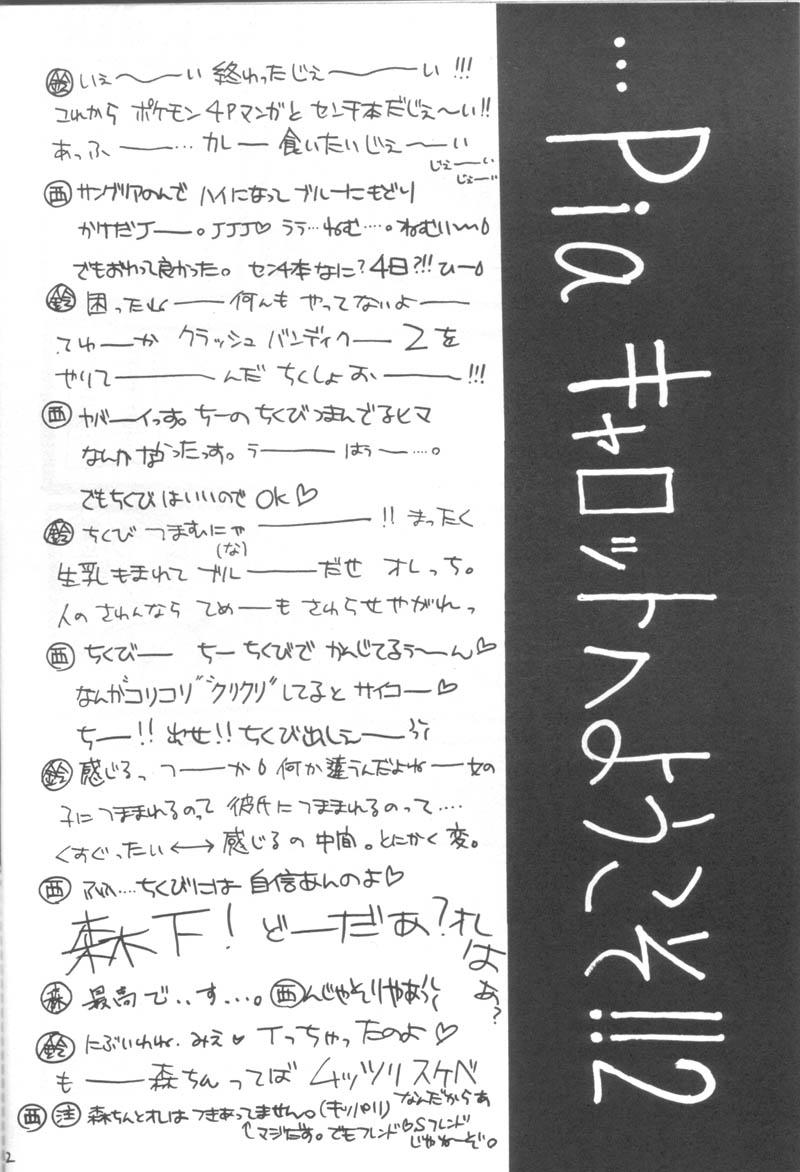 …Piaキャロットへようこそ!!2
鈴 いぇ〜ーい 終わったじぇ〜ーい!!!
これから ポケモン4Pマンガと センチ本だじぇ〜い!!
あっふ ー… カレー 食いたいじぇ〜い
じぇーい
じぇーい
西 サングリアのんで ハイになって ブルーにもどり
かけだJー。JJJ♡ ララ…ねむ…。ねむい〜
でもおわって良かった。センチ本なに?4日?!!ひー
鈴 困ったねー 何んも やってないよー
てゆーか クラッシュ バンディクー 2を
やりてーんだ ちくしょおー!!!
西 ヤバーイっす。ちーの ちくびつまんでるヒマ
なんかなかったっす。うー はぅー…。
でもちくびはいいので OK♡
鈴 ちくび つまむにゃー!! まったく
(な)
生乳もまれて ブルーだぜ オレっち。
人の さわんなら てめーも さわらせやがれっ
西 ちくびー ちー ちくびで かんじてるぅーん♡
なんがコリコリ クリクリ してると サイコー♡
ちー!! 出せ!! ちくび出しえー
鈴 感じるっ つーか 何か違うんだよねー 女の
子につままれるのって 彼氏につままれるのって…
くすぐったい ←→ 感じるの 中間。とにかく変。
西 ふふ…ちくびには 自信あんのよ♡
森木下! どーだあ?れはあ?
森 最高で‥す…。 西 んじゃそりゃあ
鈴 にぶいわね、みえ♥ イっちゃったのよ♡
もー 森ちんってば ムッツリスケベ
なんだからぁ
西 注 森ちんとオレは つきあってません。(キッパリ)
↑マジだす。でもフレンド♡Sフレンド
じゃねーぞ。
2